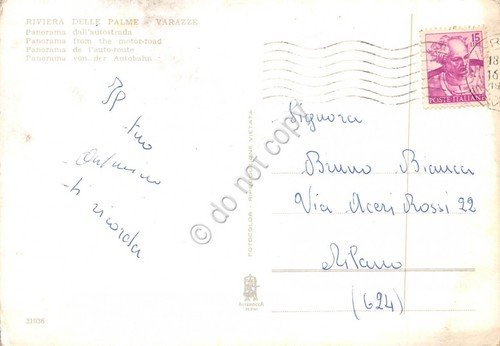 RIVIERA DELLE PALME - VARAZZE
Panorama dall'autostrada
Panorama from the motor-road
Panorama de l'auto-route
Panorama von der Autobahn
Il tuo
Antonino
ti ricorda
21036
FOTOCOLOR
VIETATA
15
POSTE ITALIANE
18
Signora
Bruno Bianca
Via Aceri Rossi 22
Milano
(624)
© do not copy